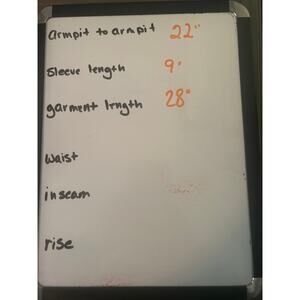 armpit to armpit 22"
sleeve length 9"
garment length 28"
waist
inseam
rise